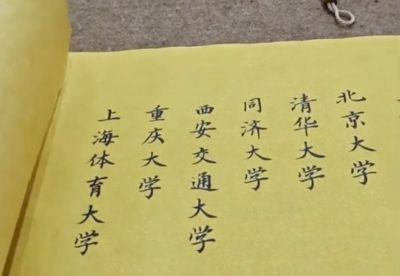 北京大学
清华大学
同济大学
西安交通大学
重庆大学
上海体育大学